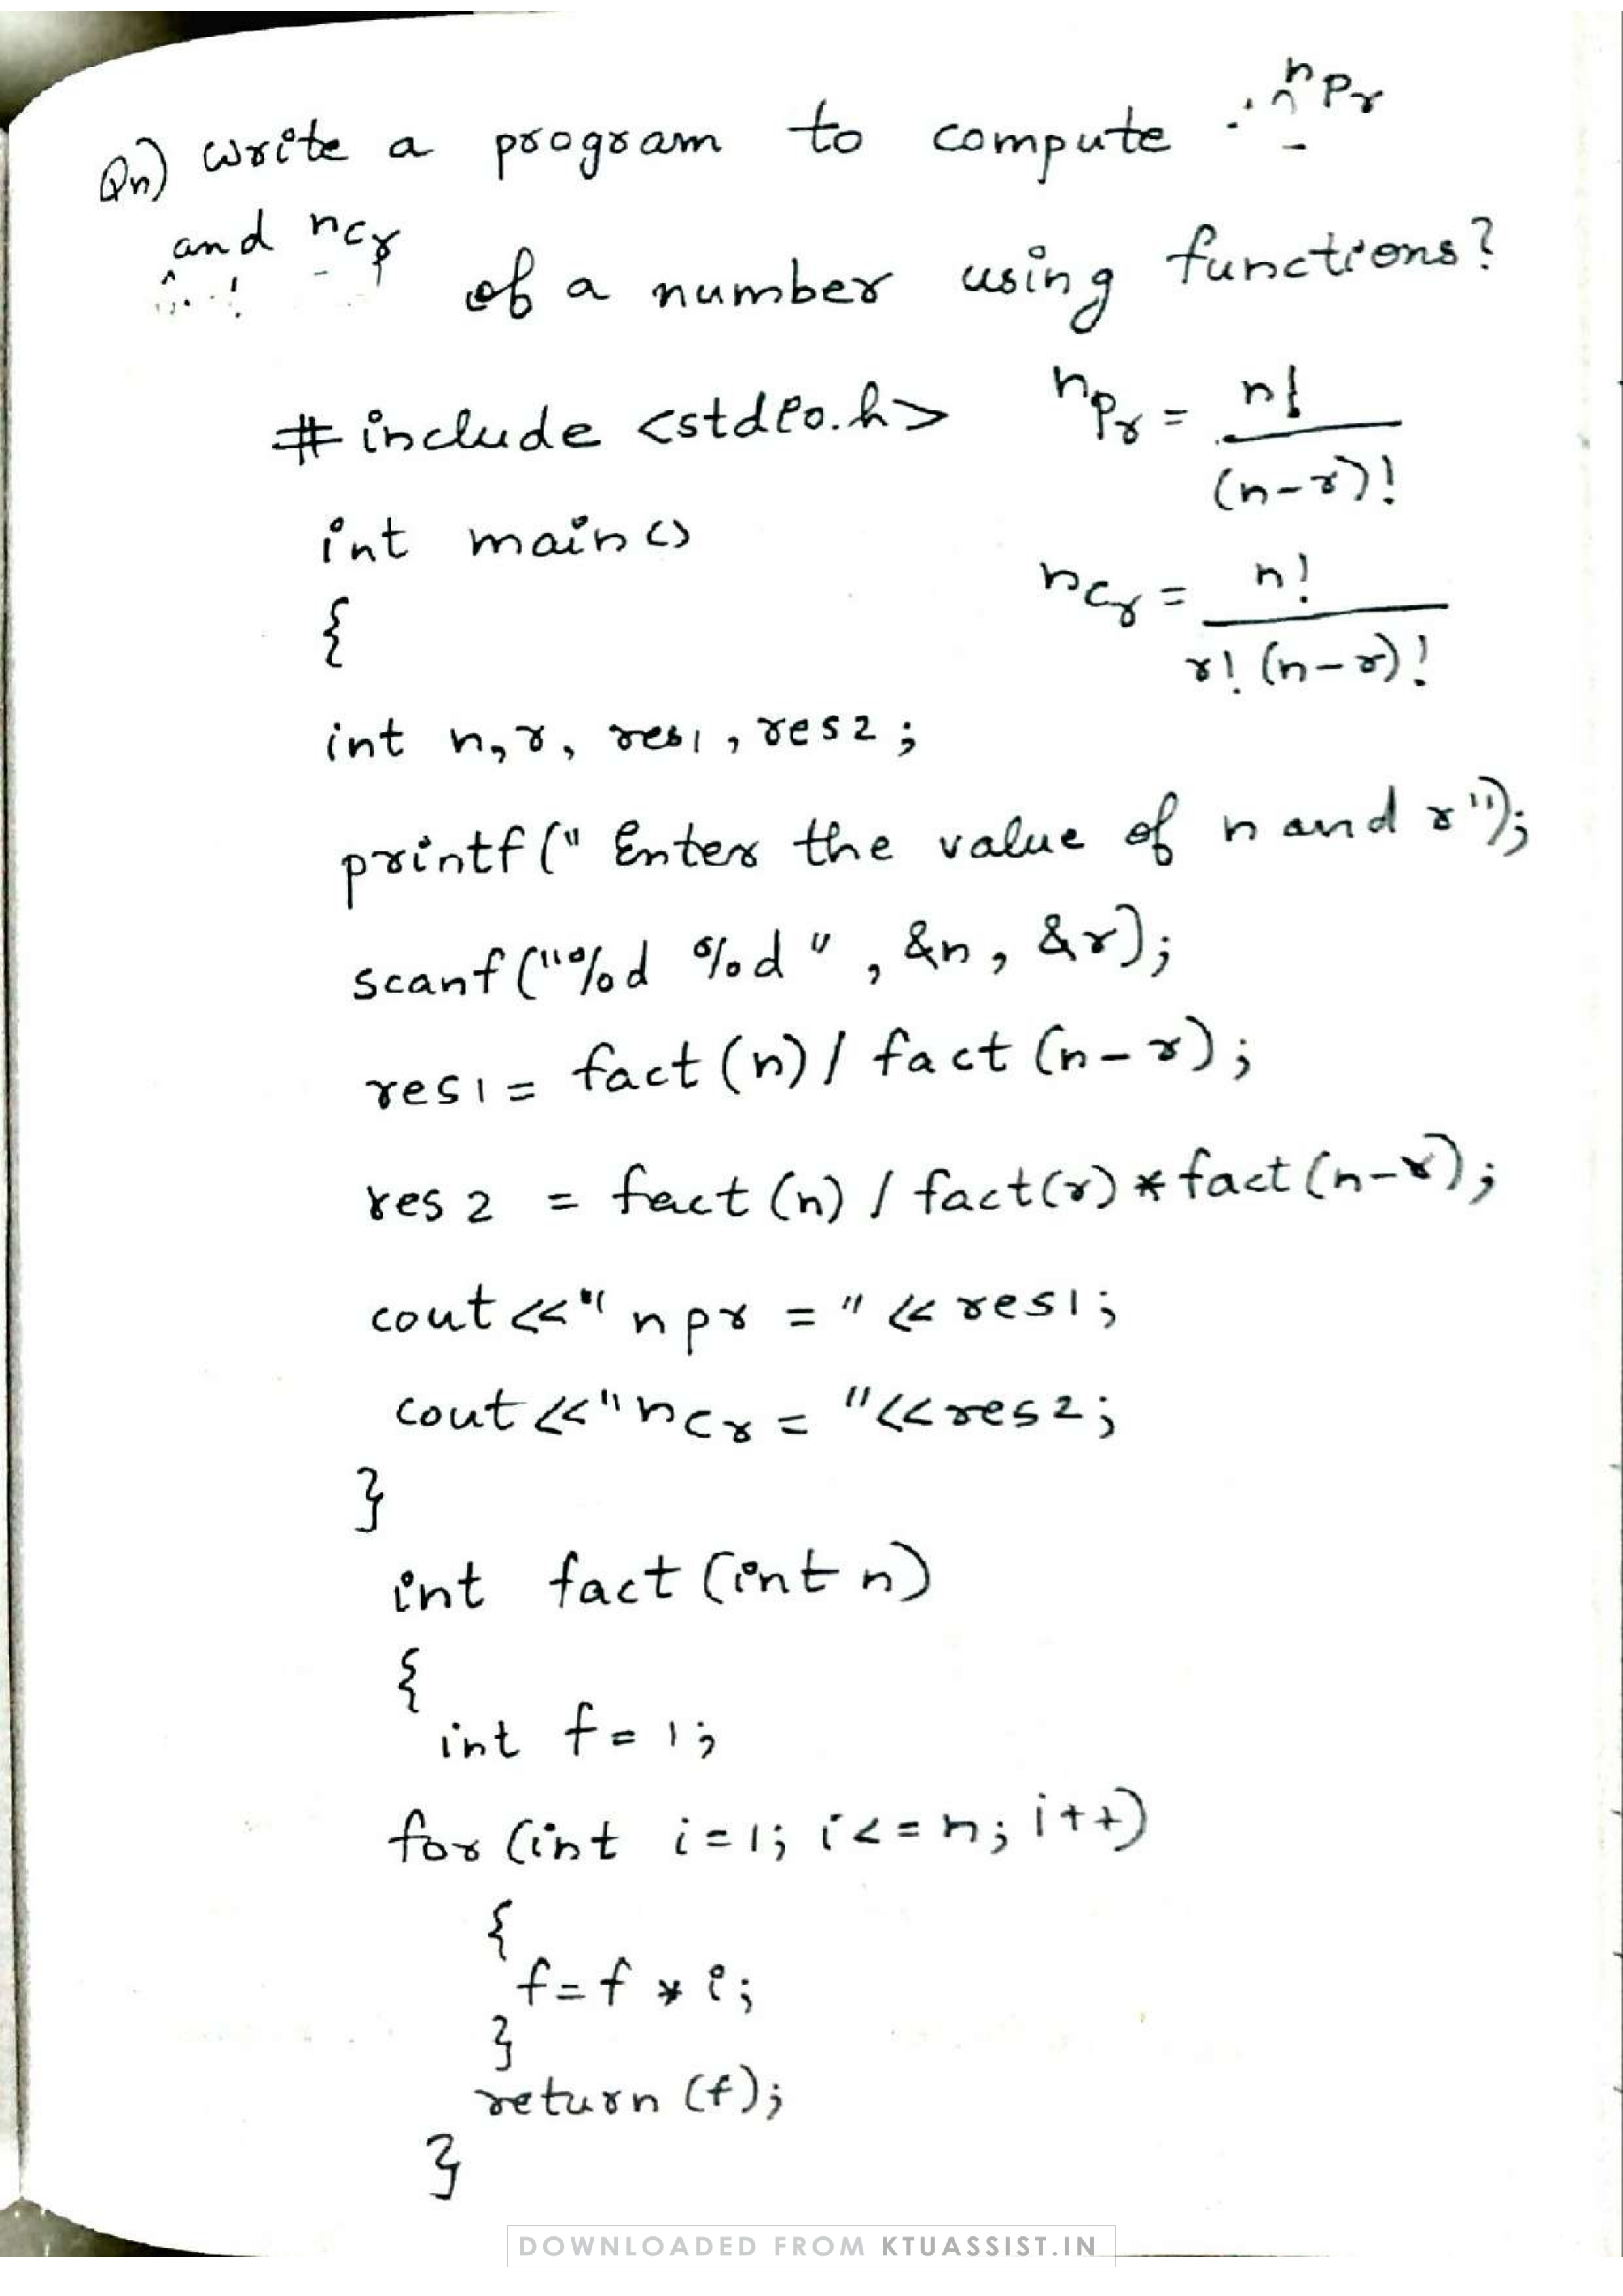 Qn) Write a program to compute nPr
and nCr of a number using functions?
#include <stdio.h>
nPr = n! / (n-r)!
int main()
{
nCr = n! / r! (n-r)!
int n, r, res1, res2;
printf(" Enter the value of n and r");
scanf("%d %d", &n, &r);
res1 = fact(n) / fact(n-r);
res2 = fact(n) / fact(r) * fact(n-r);
cout<<"npr = "<< res1;
cout<<"ncr = "<<res2;
}
int fact(int n)
{
int f = 1;
for (int i=1; i<=n; i++)
{
f = f * i;
}
return (f);
}
DOWNLOADED FROM KTUASSIST.IN